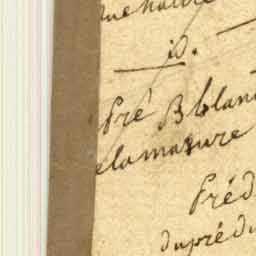 io.
Pré Bblan
elamasure
Préd
duprédu